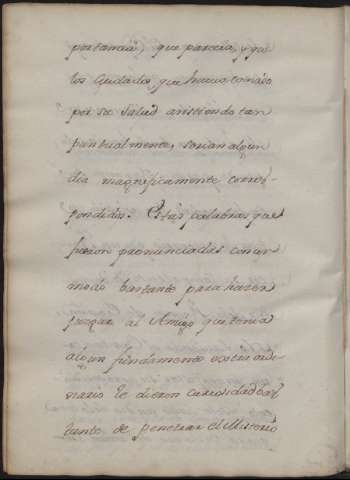 portancia, que parecia, y que
los Cuidados, que havia tenido
por su Salud asistiendo tan
puntualmente, serian algun
dia magnificamente corres-
pondidos. Estas palabras que
fueron pronunciadas con un
modo bastante para hazer
juzgar al Amigo que tenia
algun fundamento extraordi-
nario le dieron curiosidad bas
tante de penetrar el Misterio